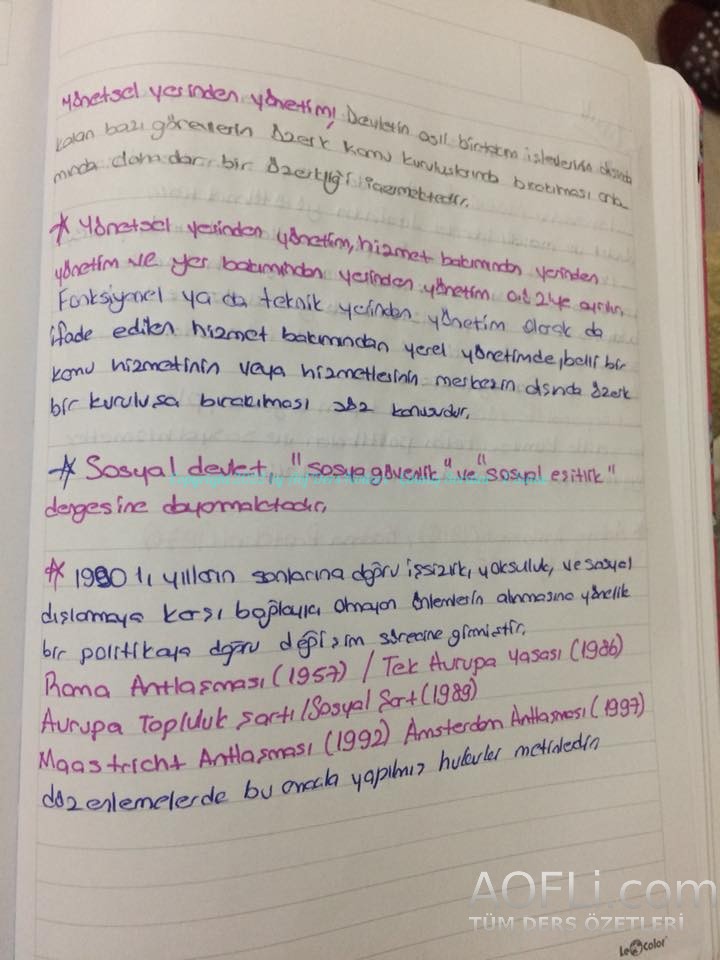 Yönetsel yerinden yönetim; Devletin asıl birtakım işlevlerinin dışında
kalan bazı görevlerin özerk kamu kuruluşlarında bırakılması anla
mında daha dar bir özerkliği içermektedir.
* Yönetsel yerinden yönetim, hizmet bakımından yerinden
yönetim ve yer bakımından yerinden yönetim ol. 2'ye ayrılır.
Fonksiyonel ya da teknik yerinden yönetim olarak da
ifade edilen hizmet bakımından yerel yönetimde, belli bir
kamu hizmetinin veya hizmetlerinin merkezin dışında özerk
bir kuruluşa bırakılması söz konusudur.
* Sosyal devlet, "sosya güvenlik" ve "sosyal eşitlik"
dergesine dayanmaktadır.
* 1980 lı yılların sonlarına doğru işsizlik, yoksuluk, ve sosyal
dışlamaya karşı bağlayıcı olmayan önlemlerin alınmasına yönelik
bir politikaya doğru değişim sürecine girmiştir.
Roma Antlaşması (1957) / Tek Avrupa Yasası (1986)
Avrupa Topluluk Şartı / Sosyal Şart (1989)
Maastricht Antlaşması (1992) Amsterdan Antlaşması (1997)
düzenlemelerde bu amaçla yapılmış metinledin
AOFLi.com
TÜM DERS ÖZETLERİ
Le color